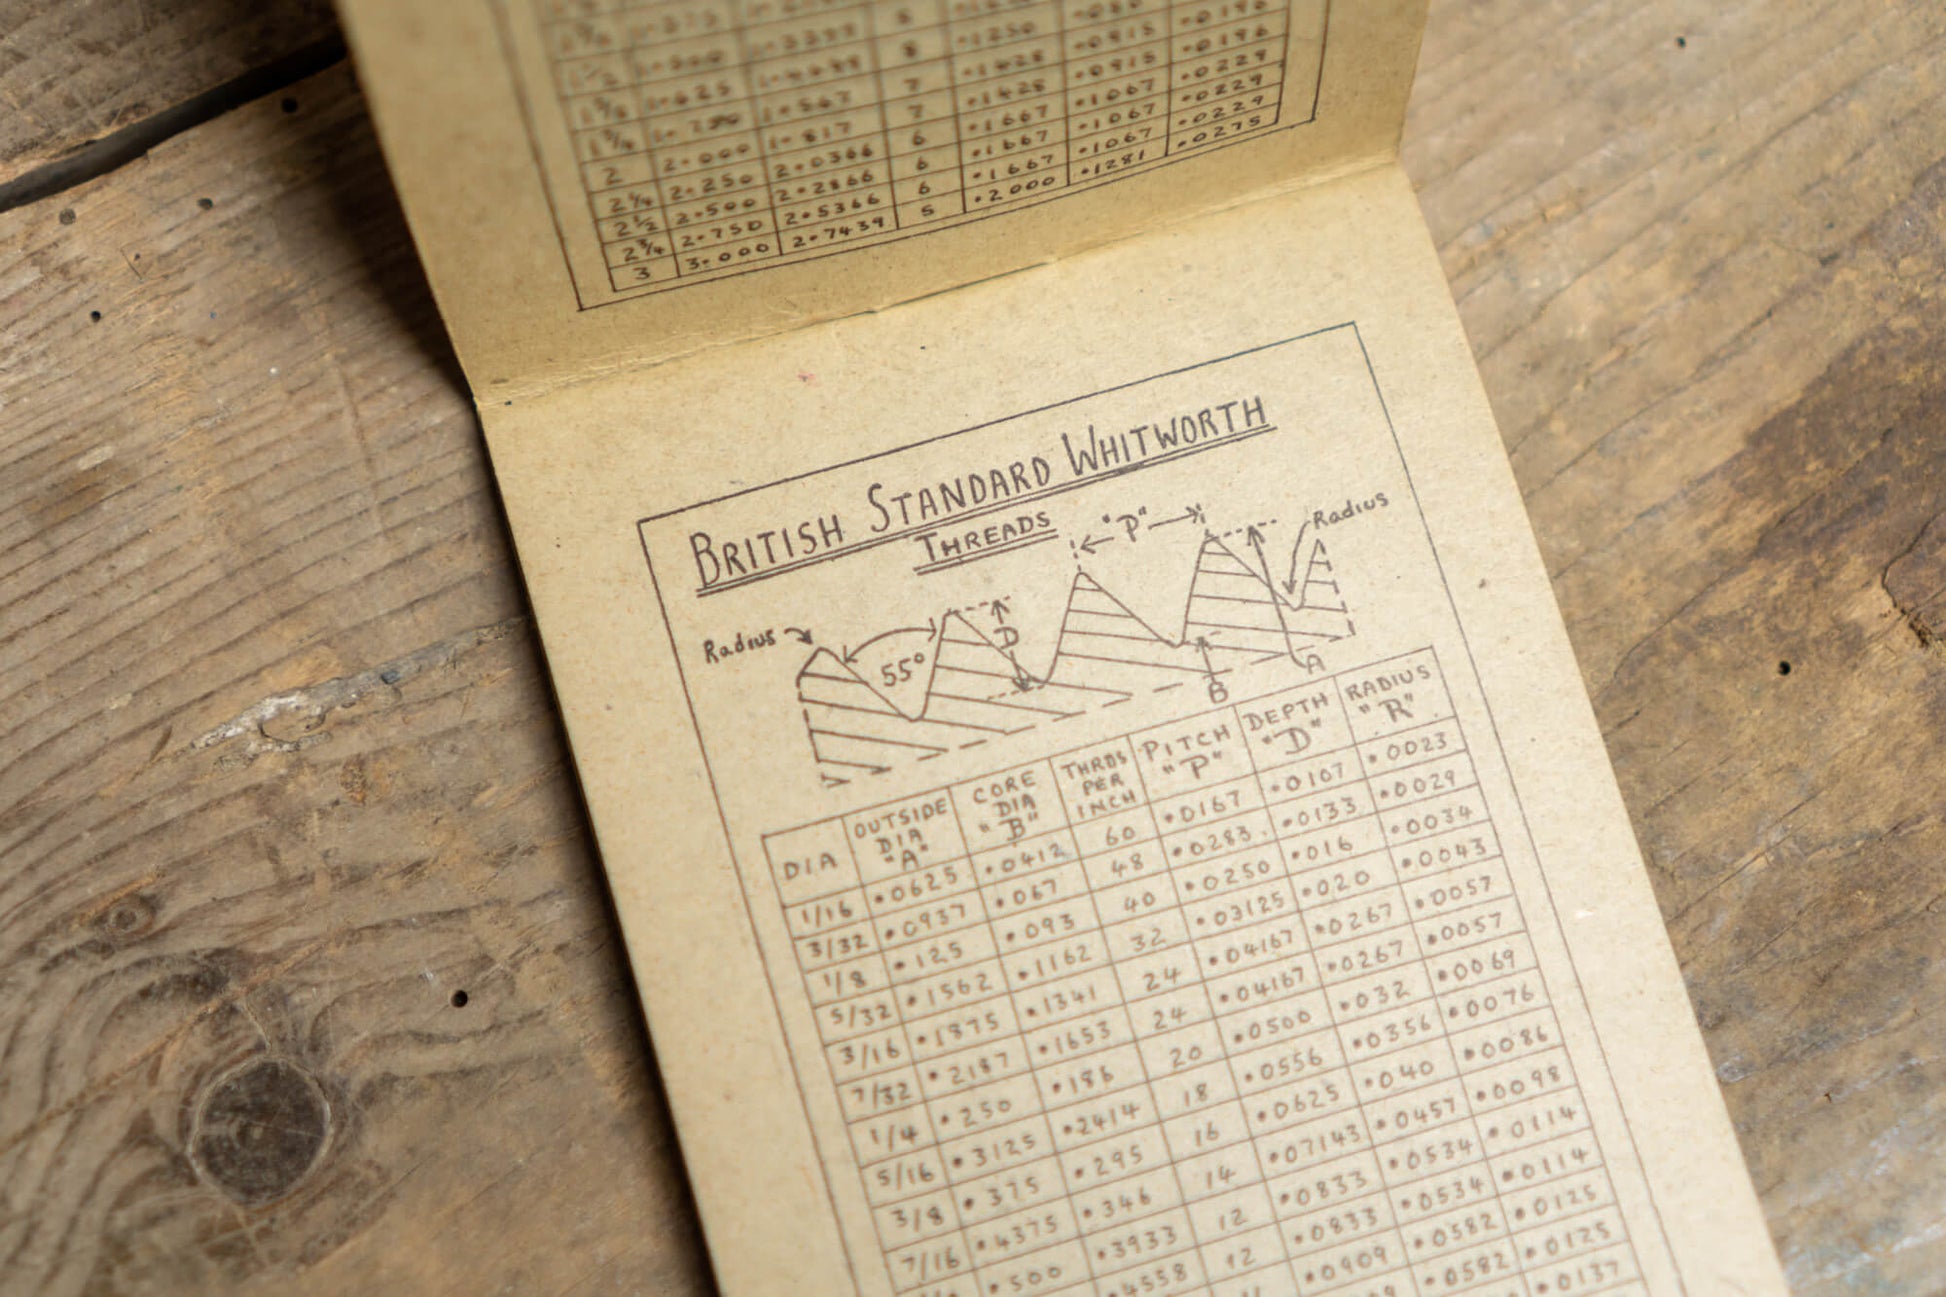 1 5/8 1.625 1.567 8 .1250
1 3/4 1.817 7 .1428 .0915 .0196
2 2.000 7 .1428 .0915 .0196
2 1/4 2.250 2.0366 6 .1667 .1067 .0229
2 1/2 2.500 2.2866 6 .1667 .1067 .0229
2 3/4 2.750 2.5366 6 .1667 .1067 .0229
3 3.000 2.7439 5 .2000 .1281 .0275
BRITISH STANDARD WHITWORTH
THREADS
"P"
Radius
Radius
55°
D
B
A
DIA OUTSIDE DIA "A" CORE DIA "B" THRDS PER INCH PITCH "P" DEPTH "D" RADIUS "R"
1/16 .0625 .0412 60 .0167 .0107 .0023
3/32 .0937 .067 48 .0283. .0133 .0029
1/8 .125 .093 40 .0250 .016 .0034
5/32 .1562 .1162 32 .03125 .020 .0043
3/16 .1875 .1341 24 .04167 .0267 .0057
7/32 .2187 .1653 24 .04167 .0267 .0057
1/4 .250 .186 20 .0500 .032 .0069
5/16 .3125 .2414 18 .0556 .0356 .0076
3/8 .375 .295 16 .0625 .040 .0086
7/16 .4375 .346 14 .07143 .0457 .0098
.500 .3933 12 .0833 .0534 .0114
.4558 12 .0833 .0534 .0114
.0909 .0582 .0125
.0582 .0125
.0137